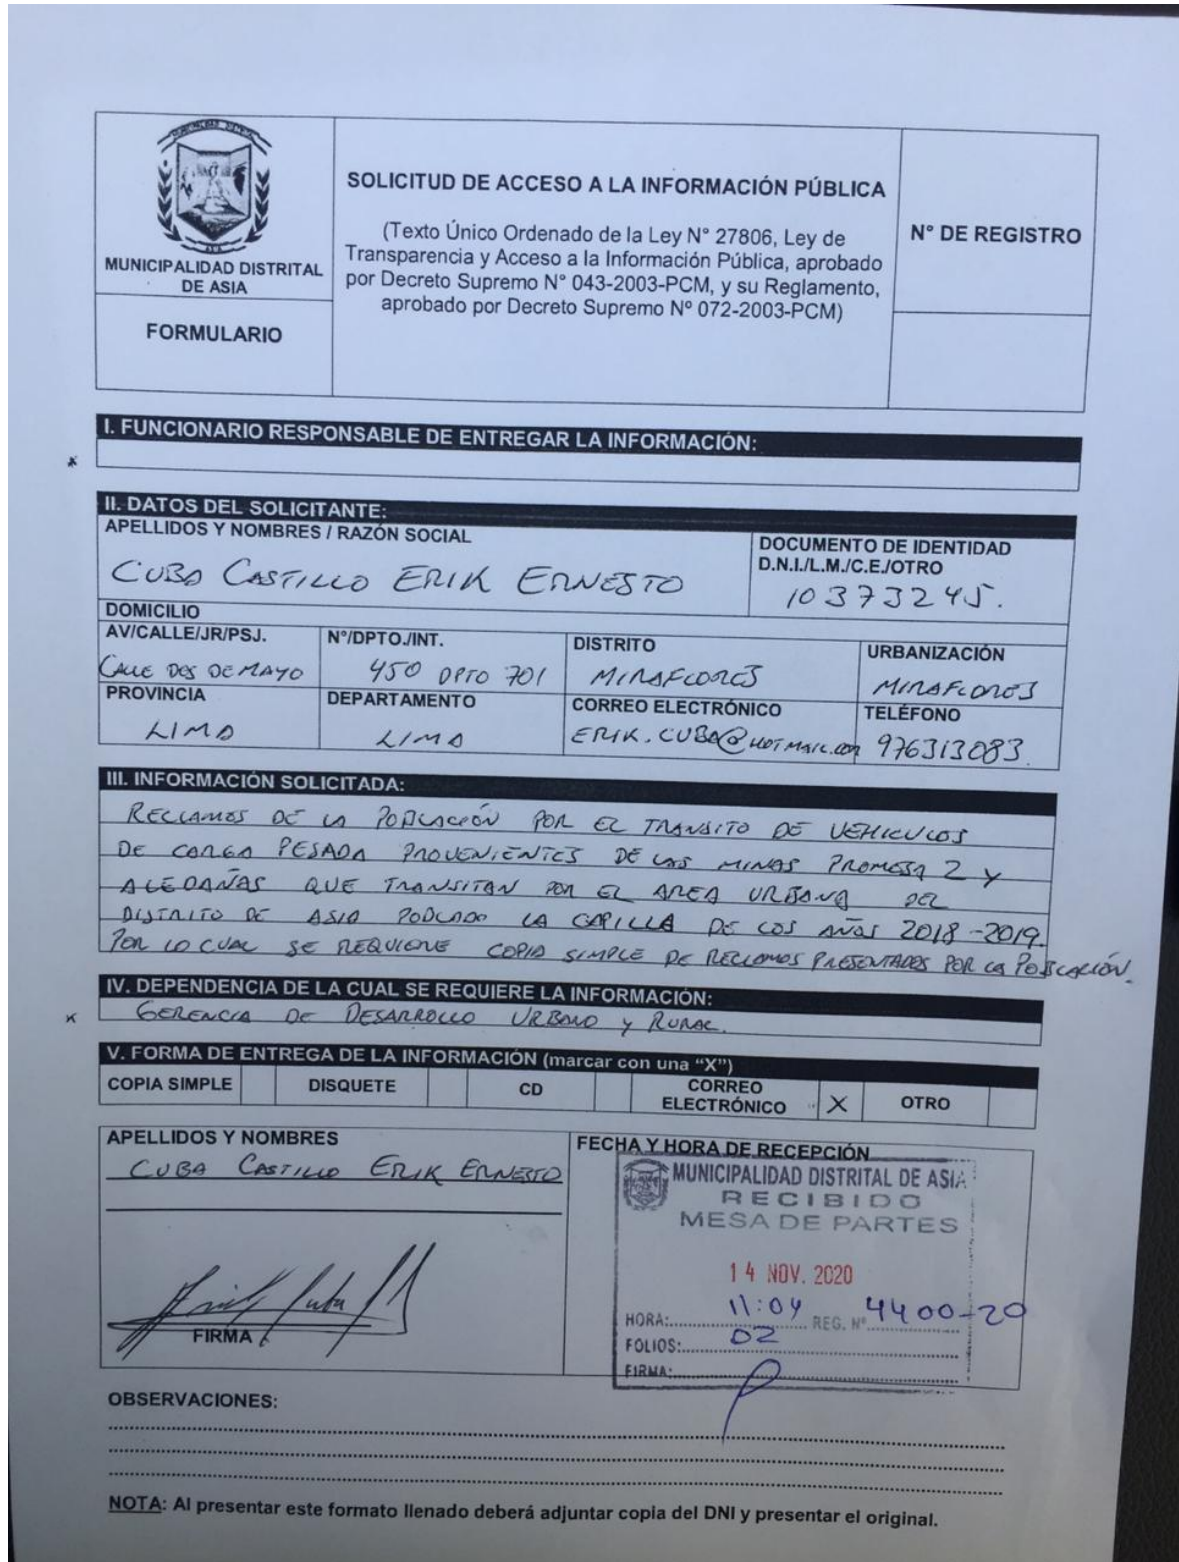 MUNICIPALIDAD DISTRITAL
DE ASIA
FORMULARIO
SOLICITUD DE ACCESO A LA INFORMACIÓN PÚBLICA
(Texto Único Ordenado de la Ley N° 27806, Ley de
Transparencia y Acceso a la Información Pública, aprobado
por Decreto Supremo N° 043-2003-PCM, y su Reglamento,
aprobado por Decreto Supremo Nº 072-2003-PCM)
N° DE REGISTRO
I. FUNCIONARIO RESPONSABLE DE ENTREGAR LA INFORMACIÓN:
II. DATOS DEL SOLICITANTE:
APELLIDOS Y NOMBRES / RAZÓN SOCIAL
CUBA CASTILLO ERIK ERNESTO
DOCUMENTO DE IDENTIDAD
D.N.I./L.M./C.E./OTRO
10373245.
DOMICILIO
AV/CALLE/JR/PSJ.
CALLE DOS DE MAYO
N°/DPTO./INT.
450 DPTO 701
DISTRITO
MIRAFLORES
URBANIZACIÓN
MIRAFLORES
PROVINCIA
LIMA
DEPARTAMENTO
LIMA
CORREO ELECTRÓNICO
ERIK.CUBA@HOTMAIL.COM
TELÉFONO
976313083.
III. INFORMACIÓN SOLICITADA:
RECLAMOS DE LA POBLACIÓN POR EL TRANSITO DE VEHICULOS
DE CARGA PESADA PROVENIENTES DE LAS MINAS PROMESA 2 Y
ALEDAÑAS QUE TRANSITAN POR EL AREA URBANA DEL
DISTRITO DE ASIA POBLADO LA CAPILLA DE LOS AÑOS 2018-2019.
POR LO CUAL SE REQUIERE COPIA SIMPLE DE RECLAMOS PRESENTADOS POR LA POBLACIÓN.
IV. DEPENDENCIA DE LA CUAL SE REQUIERE LA INFORMACIÓN:
GERENCIA DE DESARROLLO URBANO Y RURAL.
V. FORMA DE ENTREGA DE LA INFORMACIÓN (marcar con una "X")
COPIA SIMPLE
DISQUETE
CD
CORREO
ELECTRÓNICO
X
OTRO
APELLIDOS Y NOMBRES
CUBA CASTILLO ERIK ERNESTO
FIRMA
FECHA Y HORA DE RECEPCIÓN
MUNICIPALIDAD DISTRITAL DE ASIA
RECIBIDO
MESA DE PARTES
14 NOV. 2020
HORA: 11:04 REG. Nº 4400-20
FOLIOS: 02
FIRMA:
OBSERVACIONES:
NOTA: Al presentar este formato llenado deberá adjuntar copia del DNI y presentar el original.